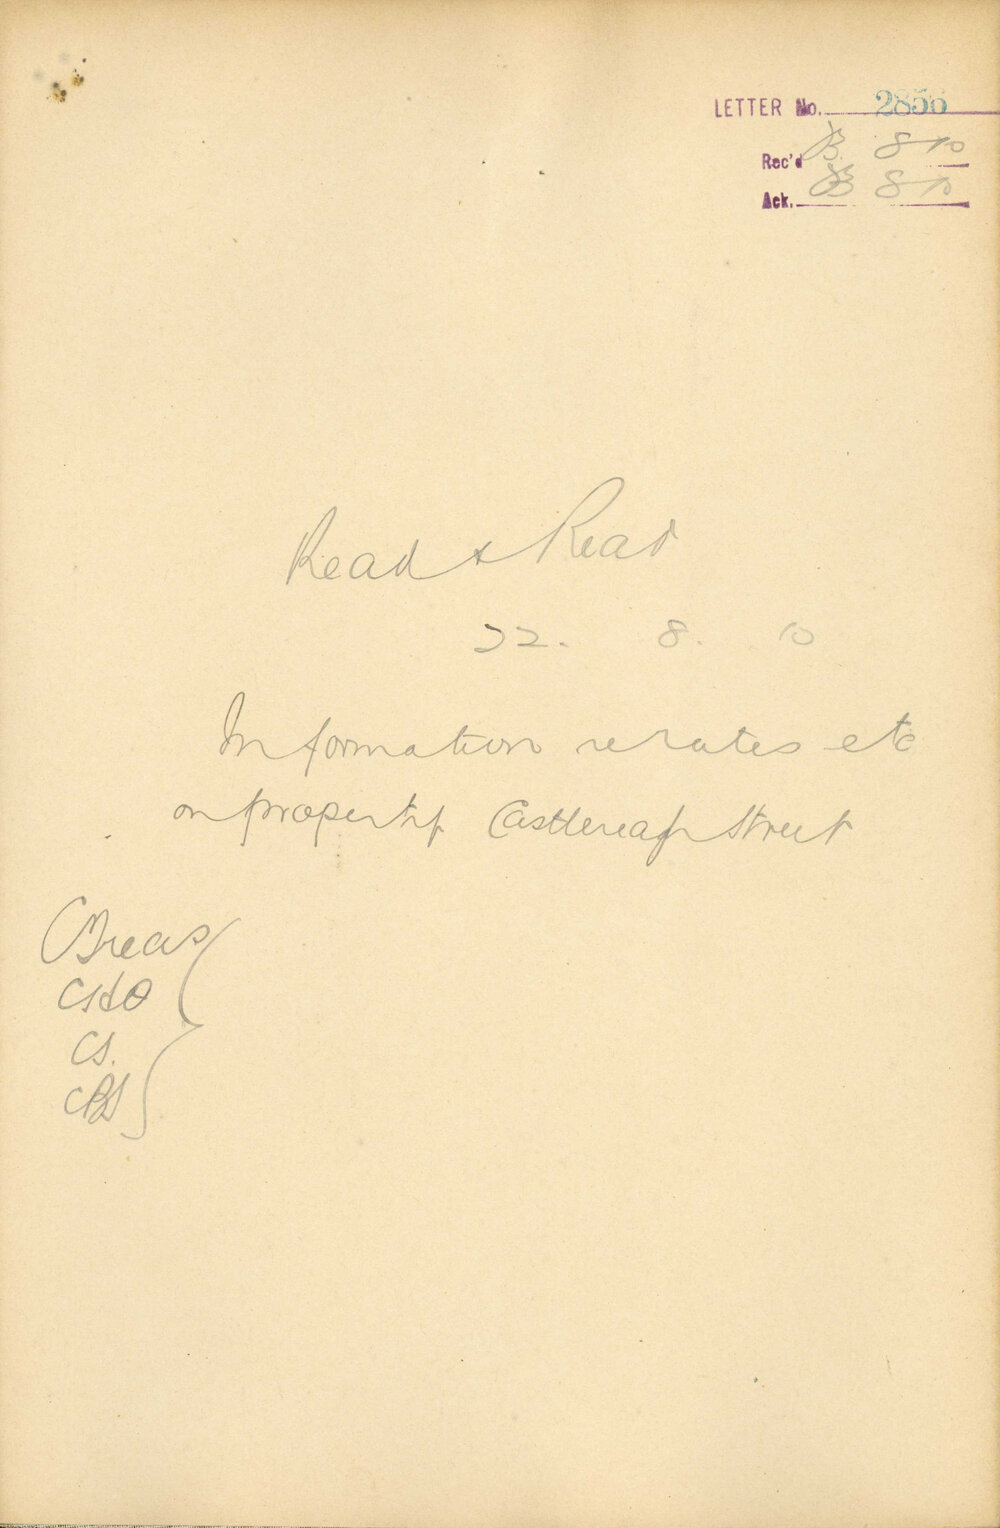 LETTER No. 2856
Rec'd 8 10
Ack. 8 10
Read & Read
22. 8. 10
Information re rates etc
on property Castlereagh Street
CTreas
CS